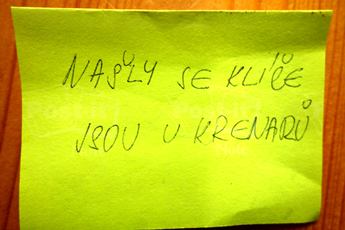 NAŠLY SE KLÍČE
JSOU U KRENARŮ